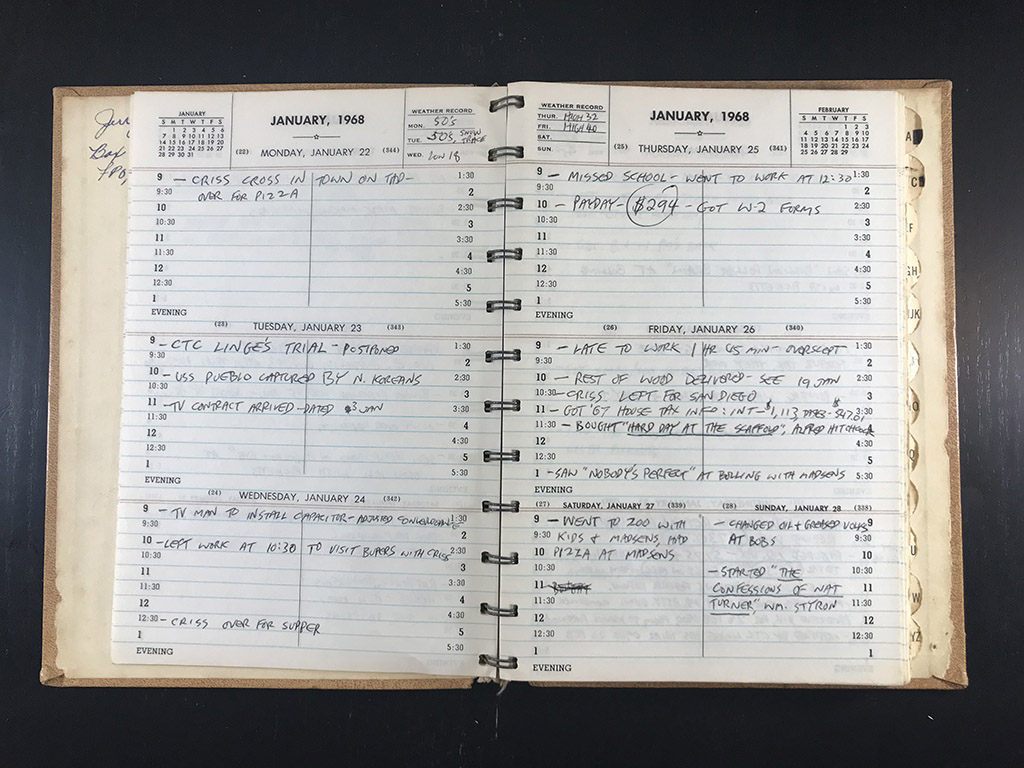 Jerr
Box
FPO,
JANUARY
S M T W T F S
1 2 3 4 5 6
7 8 9 10 11 12 13
14 15 16 17 18 19 20
21 22 23 24 25 26 27
28 29 30 31
JANUARY, 1968
(22) MONDAY, JANUARY 22 (344)
WEATHER RECORD
MON. 50'S
TUE. 50'S, SNOW TRACE
WED. LOW 18
9 – CRISS CROSS IN TOWN ON TAD – 1:30
9:30 OVER FOR PIZZA 2
10 2:30
10:30 3
11 3:30
11:30 4
12 4:30
12:30 5
1 5:30
EVENING
(23) TUESDAY, JANUARY 23 (343)
9 – CTC LINGE'S TRIAL – POSTPONED 1:30
9:30 2
10 – USS PUEBLO CAPTURED BY N. KOREANS 2:30
10:30 3
11 – TV CONTRACT ARRIVED – DATED 3 JAN 3:30
11:30 4
12 4:30
12:30 5
1 5:30
EVENING
(24) WEDNESDAY, JANUARY 24 (342)
9 – TV MAN TO INSTALL CAPACITOR – ADJUSTED 1:30
9:30 2
10 – LEFT WORK AT 10:30 TO VISIT BUPERS WITH CRISS 2:30
10:30 3
11 3:30
11:30 4
12 4:30
12:30 – CRISS OVER FOR SUPPER 5
1 5:30
EVENING
WEATHER RECORD
THUR. HIGH 32
FRI. HIGH 40
SAT.
SUN.
JANUARY, 1968
(25) THURSDAY, JANUARY 25 (341)
FEBRUARY
S M T W T F S
1 2 3
4 5 6 7 8 9 10
11 12 13 14 15 16 17
18 19 20 21 22 23 24
25 26 27 28 29
9 – MISSED SCHOOL – WENT TO WORK AT 12:30 1:30
9:30 2
10 – PAYDAY – $294 – GOT W-2 FORMS 2:30
10:30 3
11 3:30
11:30 4
12 4:30
12:30 5
1 5:30
EVENING
(26) FRIDAY, JANUARY 26 (340)
9 – LATE TO WORK 1 HR 45 MIN – OVERSLEPT 1:30
9:30 2
10 – REST OF WOOD DELIVERED – SEE 19 JAN 2:30
10:30 – CRISS LEFT FOR SAN DIEGO 3
11 – GOT '67 HOUSE TAX INFO: INT – $1,113, TAXES – 3:30
11:30 – BOUGHT "HARD DAY AT THE SCAFFOLD", ALFRED HITCHCOCK 4
12 4:30
12:30 5
1 – SAW "NOBODY'S PERFECT" AT BOLLING WITH MADSENS 5:30
EVENING
(27) SATURDAY, JANUARY 27 (339)
9 – WENT TO ZOO WITH
9:30 KIDS & MADSENS, HAD
10 PIZZA AT MADSENS
10:30
11
11:30
12
12:30
1
EVENING
(28) SUNDAY, JANUARY 28 (338)
– CHANGED OIL & GREASED VOLKS 9
AT BOBS 9:30
10
– STARTED "THE 10:30
CONFESSIONS OF NAT 11
TURNER," WM. STYRON 11:30
12
12:30
1
A
C
EF
GH
IJK
O
Q
U
W
YZ